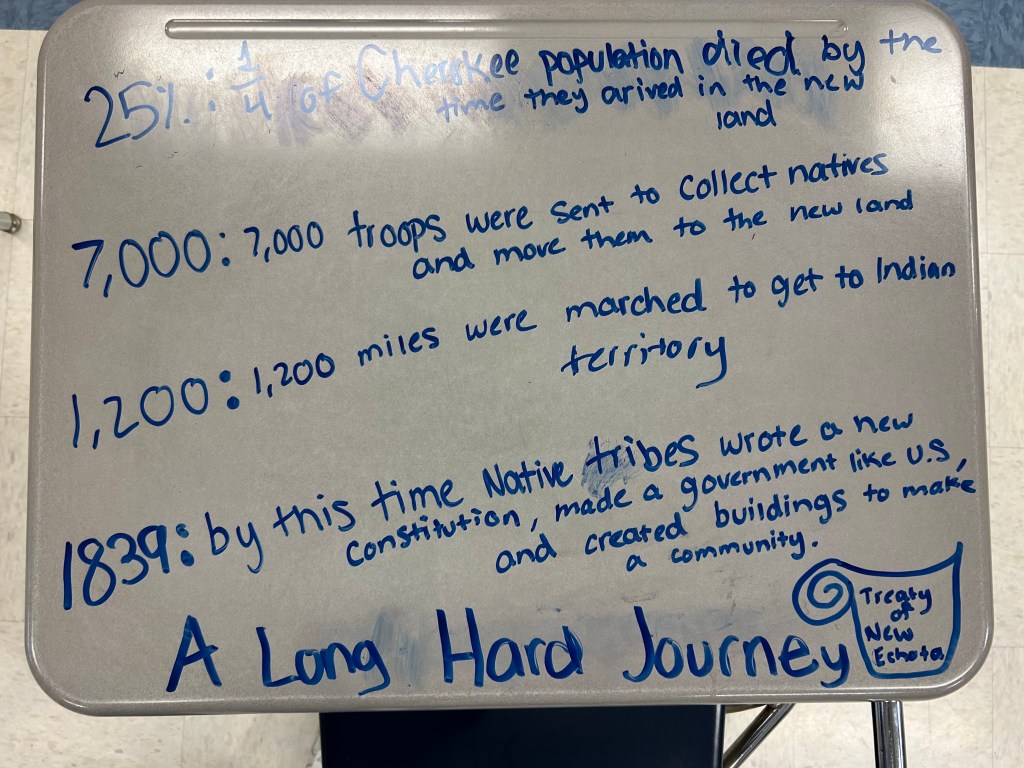 25%: 1/4 of Cherokee population died by the
time they arived in the new
land
7,000: 7,000 troops were sent to collect natives
and move them to the new land
1,200: 1,200 miles were marched to get to Indian
territory
1839: by this time Native tribes wrote a new
constitution, made a government like U.S,
and created buildings to make
a community.
A Long Hard Journey
Treaty
of
New
Echota